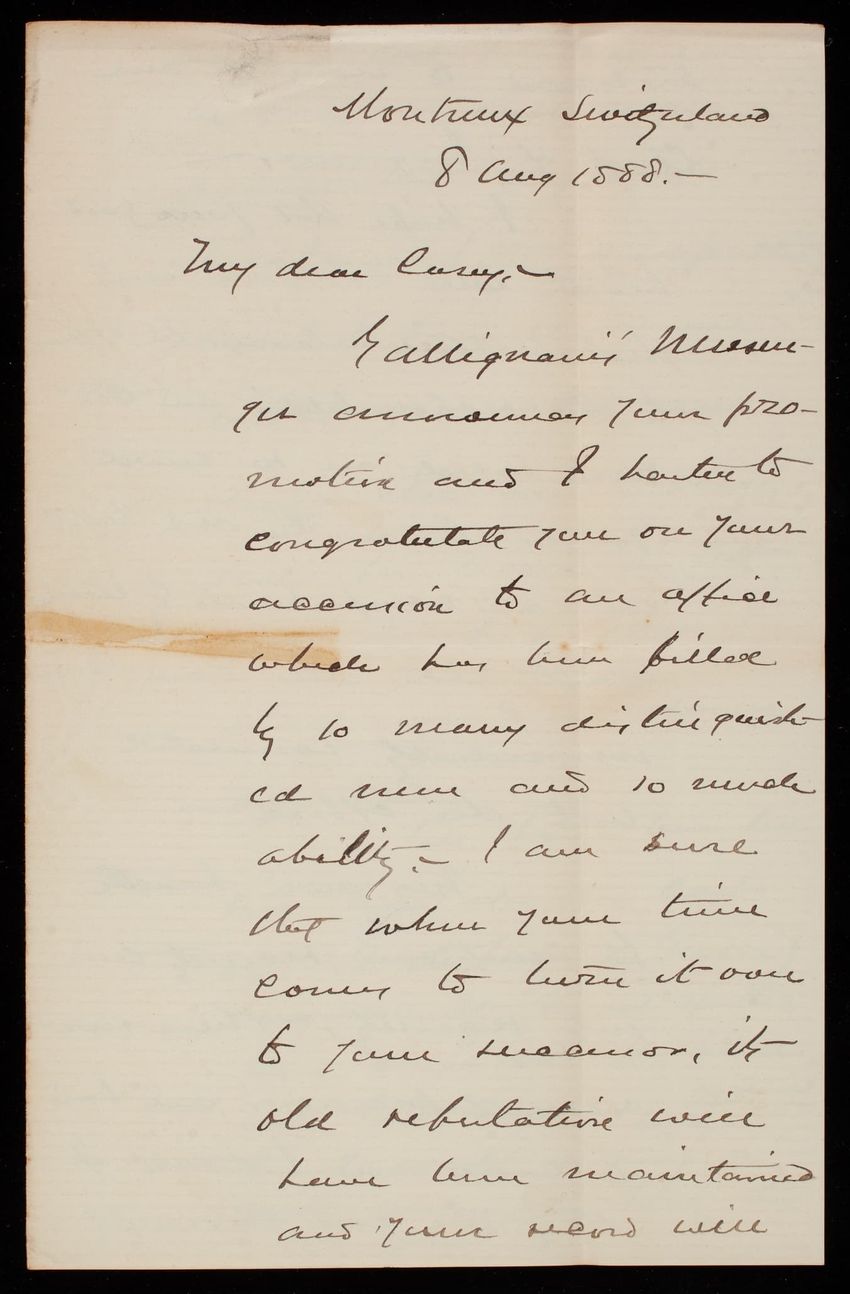 Montreux Switzerland
8 Aug 1888.—
My dear Casey,—
Gallignani's Messen-
ger announces your pro-
motion and I hasten to
congratulate you on your
accession to an office
which has been filled
by so many distinguish-
ed men and so much
ability.— I am sure
that when your time
comes to turn it over
to your successor, its
old reputation will
have been maintained
and your record will